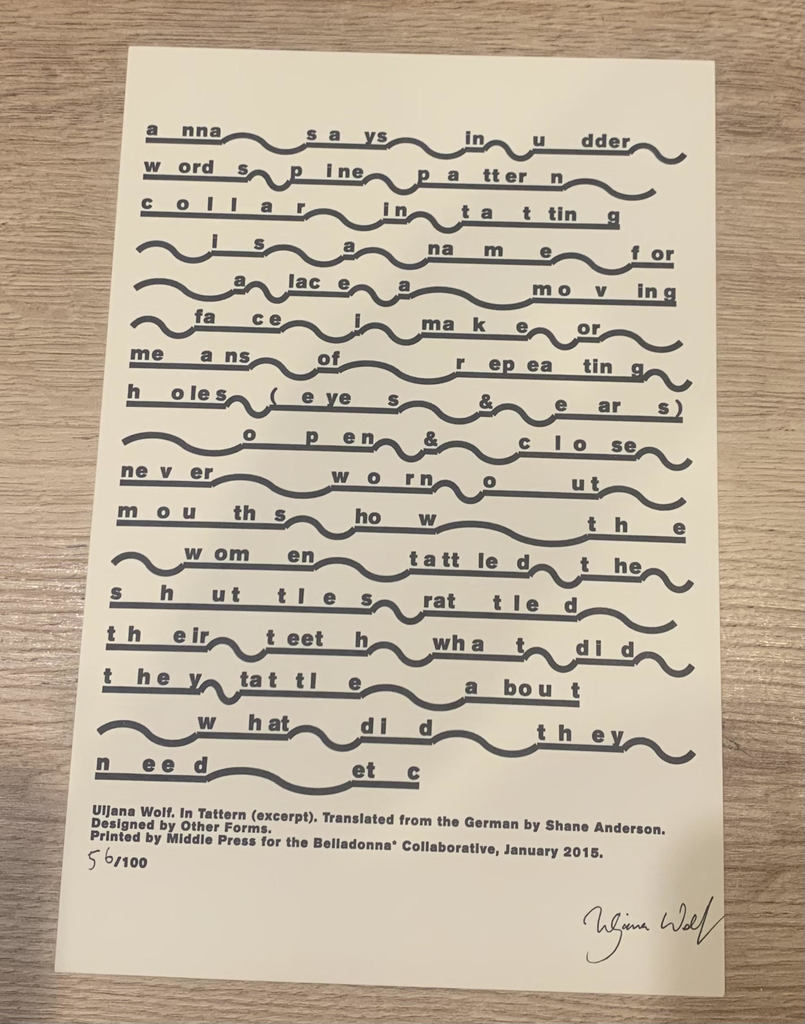 anna says in udder
words pine pattern
collar in tatting
is a name for
a lace a moving
face i make or
means of repeating
holes (eyes & ears)
open & close
never worn out
mouths how the
women tattled the
shuttles rattled
their teeth what did
they tattle about
what did they
need etc
Uljana Wolf. In Tattern (excerpt). Translated from the German by Shane Anderson.
Designed by Other Forms.
Printed by Middle Press for the Belladonna* Collaborative, January 2015.
56/100
Uljana Wolf